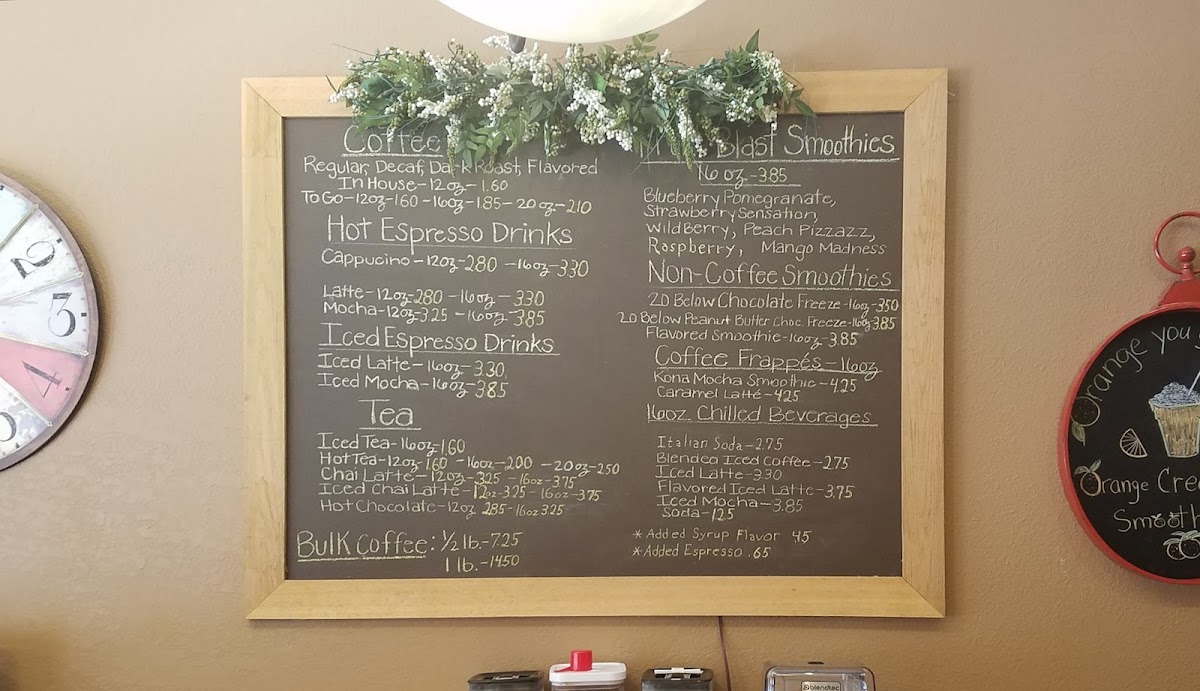 Coffee
Regular, Decaf, Dark Roast, Flavored
In House-12oz-1.60
To Go-12oz-1.60 -16oz-1.85-20oz-2.10
Hot Espresso Drinks
Cappucino-12oz-2.80 -16oz-3.30
Latte-12oz-2.80 -16oz-3.30
Mocha-12oz-3.25 -16oz-3.85
Iced Espresso Drinks
Iced Latte-16oz-3.30
Iced Mocha-16oz-3.85
Tea
Iced Tea-16oz-1.60
Hot Tea-12oz-1.60 -16oz-2.00 -20oz-2.50
Chai Latte-12oz-3.25 -16oz-3.75
Iced Chai Latte-12oz-3.25-16oz-3.75
Hot Chocolate-12oz 2.85-16oz 3.25
Bulk Coffee: 1/2 lb.-7.25
1 lb.-14.50
Blast Smoothies
16 oz-3.85
Blueberry Pomegranate,
Strawberry Sensation,
Wild Berry, Peach Pizzazz,
Raspberry, Mango Madness
Non-Coffee Smoothies
20 Below Chocolate Freeze-16oz-3.50
20 Below Peanut Butter Choc. Freeze-16oz-3.85
Flavored Smoothie-16oz-3.85
Coffee Frappés-16oz
Kona Mocha Smoothie-4.25
Caramel Latté-4.25
16oz. Chilled Beverages
Italian Soda-2.75
Blended Iced Coffee-2.75
Iced Latte-3.30
Flavored Iced Latte-3.75
Iced Mocha-3.85
Soda-1.25
*Added Syrup Flavor .45
*Added Espresso .65
2
3
4
Orange you
Orange Cre
Smooth
blendtec